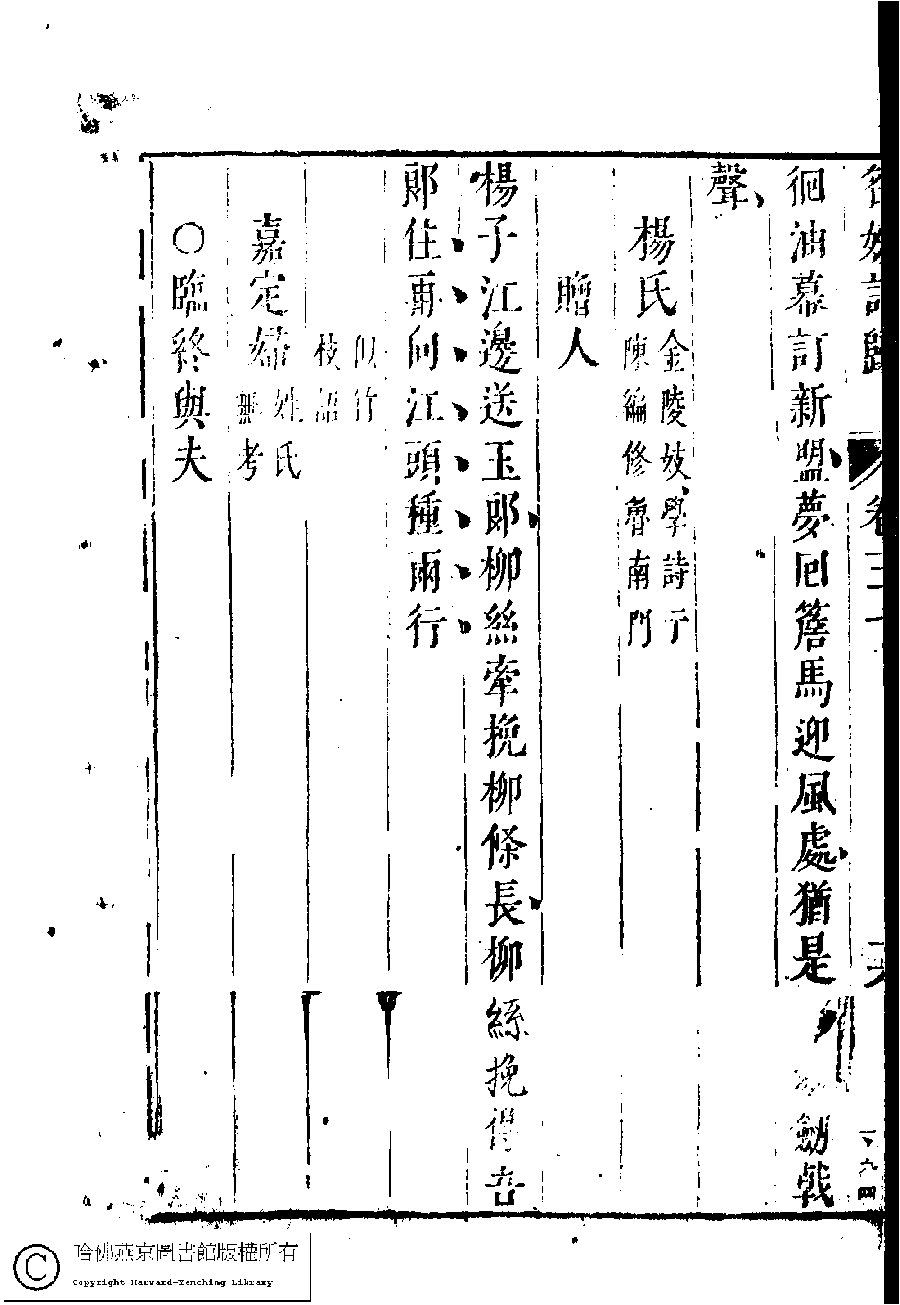 徊油幕訂新盟夢囘簷馬迎風處猶是劒戟
聲
楊氏
金陵妓學詩于
陳編修魯南門
贈人
楊子江邊送玉郎柳絲牽挽柳條長柳絲挽得吾
郎住再向江頭種兩行
似竹
枝詔
嘉定婦
姓氏
無考
○臨終與夫
卷三十
一九四
哈佛燕京圖書館版權所有
Copyright Harvard-Yenching Library